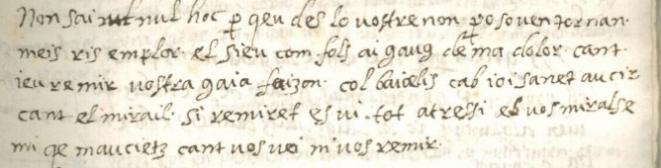 Non sai nul hoc ꝑ qeu des lo vostre non. ꝑo soven tornan
meis ris em plor. el sieu com fols ai gaug de ma dolor. cant
ieu remir vostra gaia faizon. col bazelis cab ioi sanet aucir
cant el mirail. si remiret es vi. tot atressi es vos miralse
mi qe mauciez cant vos vei ni vos remir.